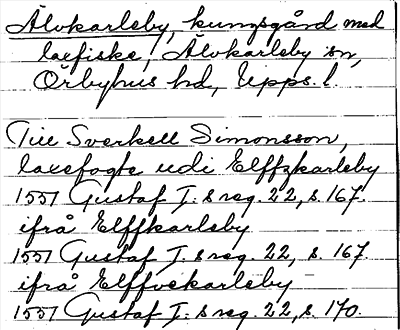 Älvkarleby, kungsgård med
laxfiske, Älvkarleby sn,
Örbyhus hd, Upps. l.
Till Sverkell Simonsson,
laxefogte udi Elffzkarleby
1551 Gustaf I:s reg. 22, s. 167.
ifrå Elffkarleby
1551 Gustaf I:s reg. 22, s. 167.
ifrå Elffvekarleby
1551 Gustaf I:s reg. 22, s. 170.